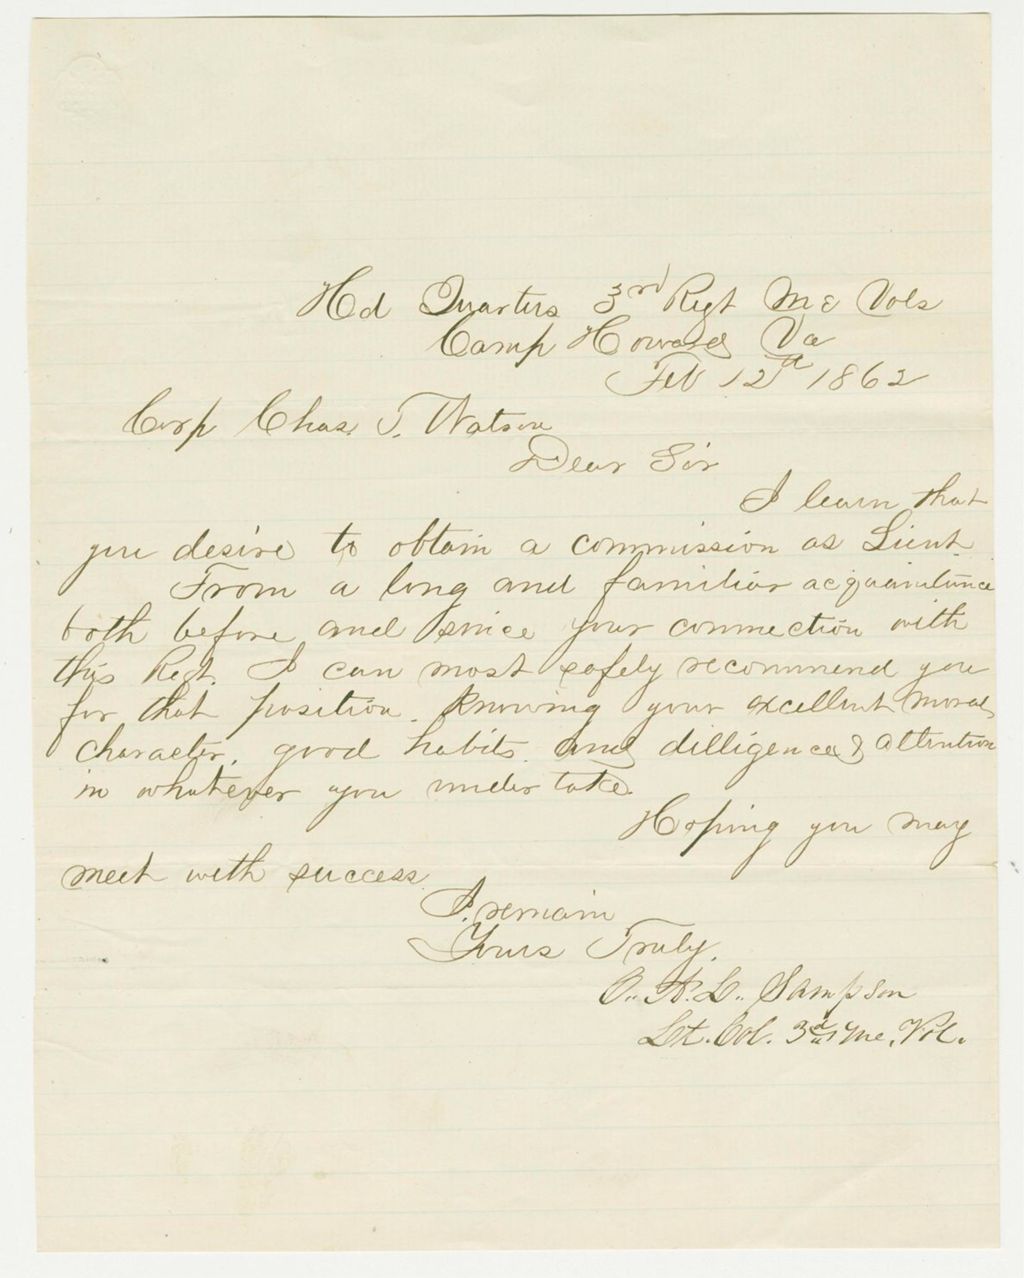 Hd Quarters 3rd Regt Me Vols
Camp Howard Va
Feb 12th 1862
Corp Chas. T. Watson
Dear Sir
I learn that
you desire to obtain a commission as Lieut.
From a long and familiar acquaintance
both before and since your connection with
this Regt. I can most safely recommend you
for that position. Knowing your excellent moral
character, good habits, and dilligence & attention
in whatever you undertake.
Hoping you may
meet with success
I remain
Yours Truly,
Lt. Col. 3d Me. Vol.